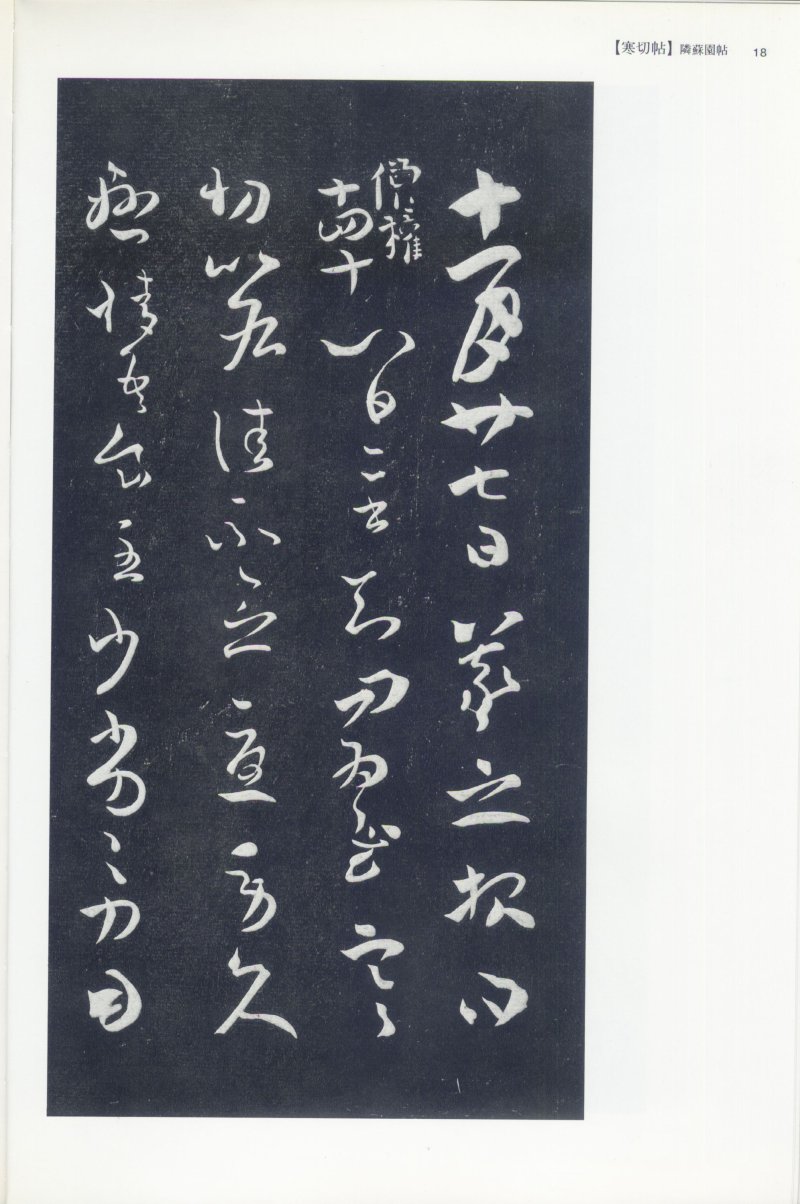 【寒切帖】 隣蘇園帖 18
十一月廿七日羲之報得
僧權
十四十八日二書知問為慰寒
切比各佳不念憂勞久
懸情吾食至少劣劣力因